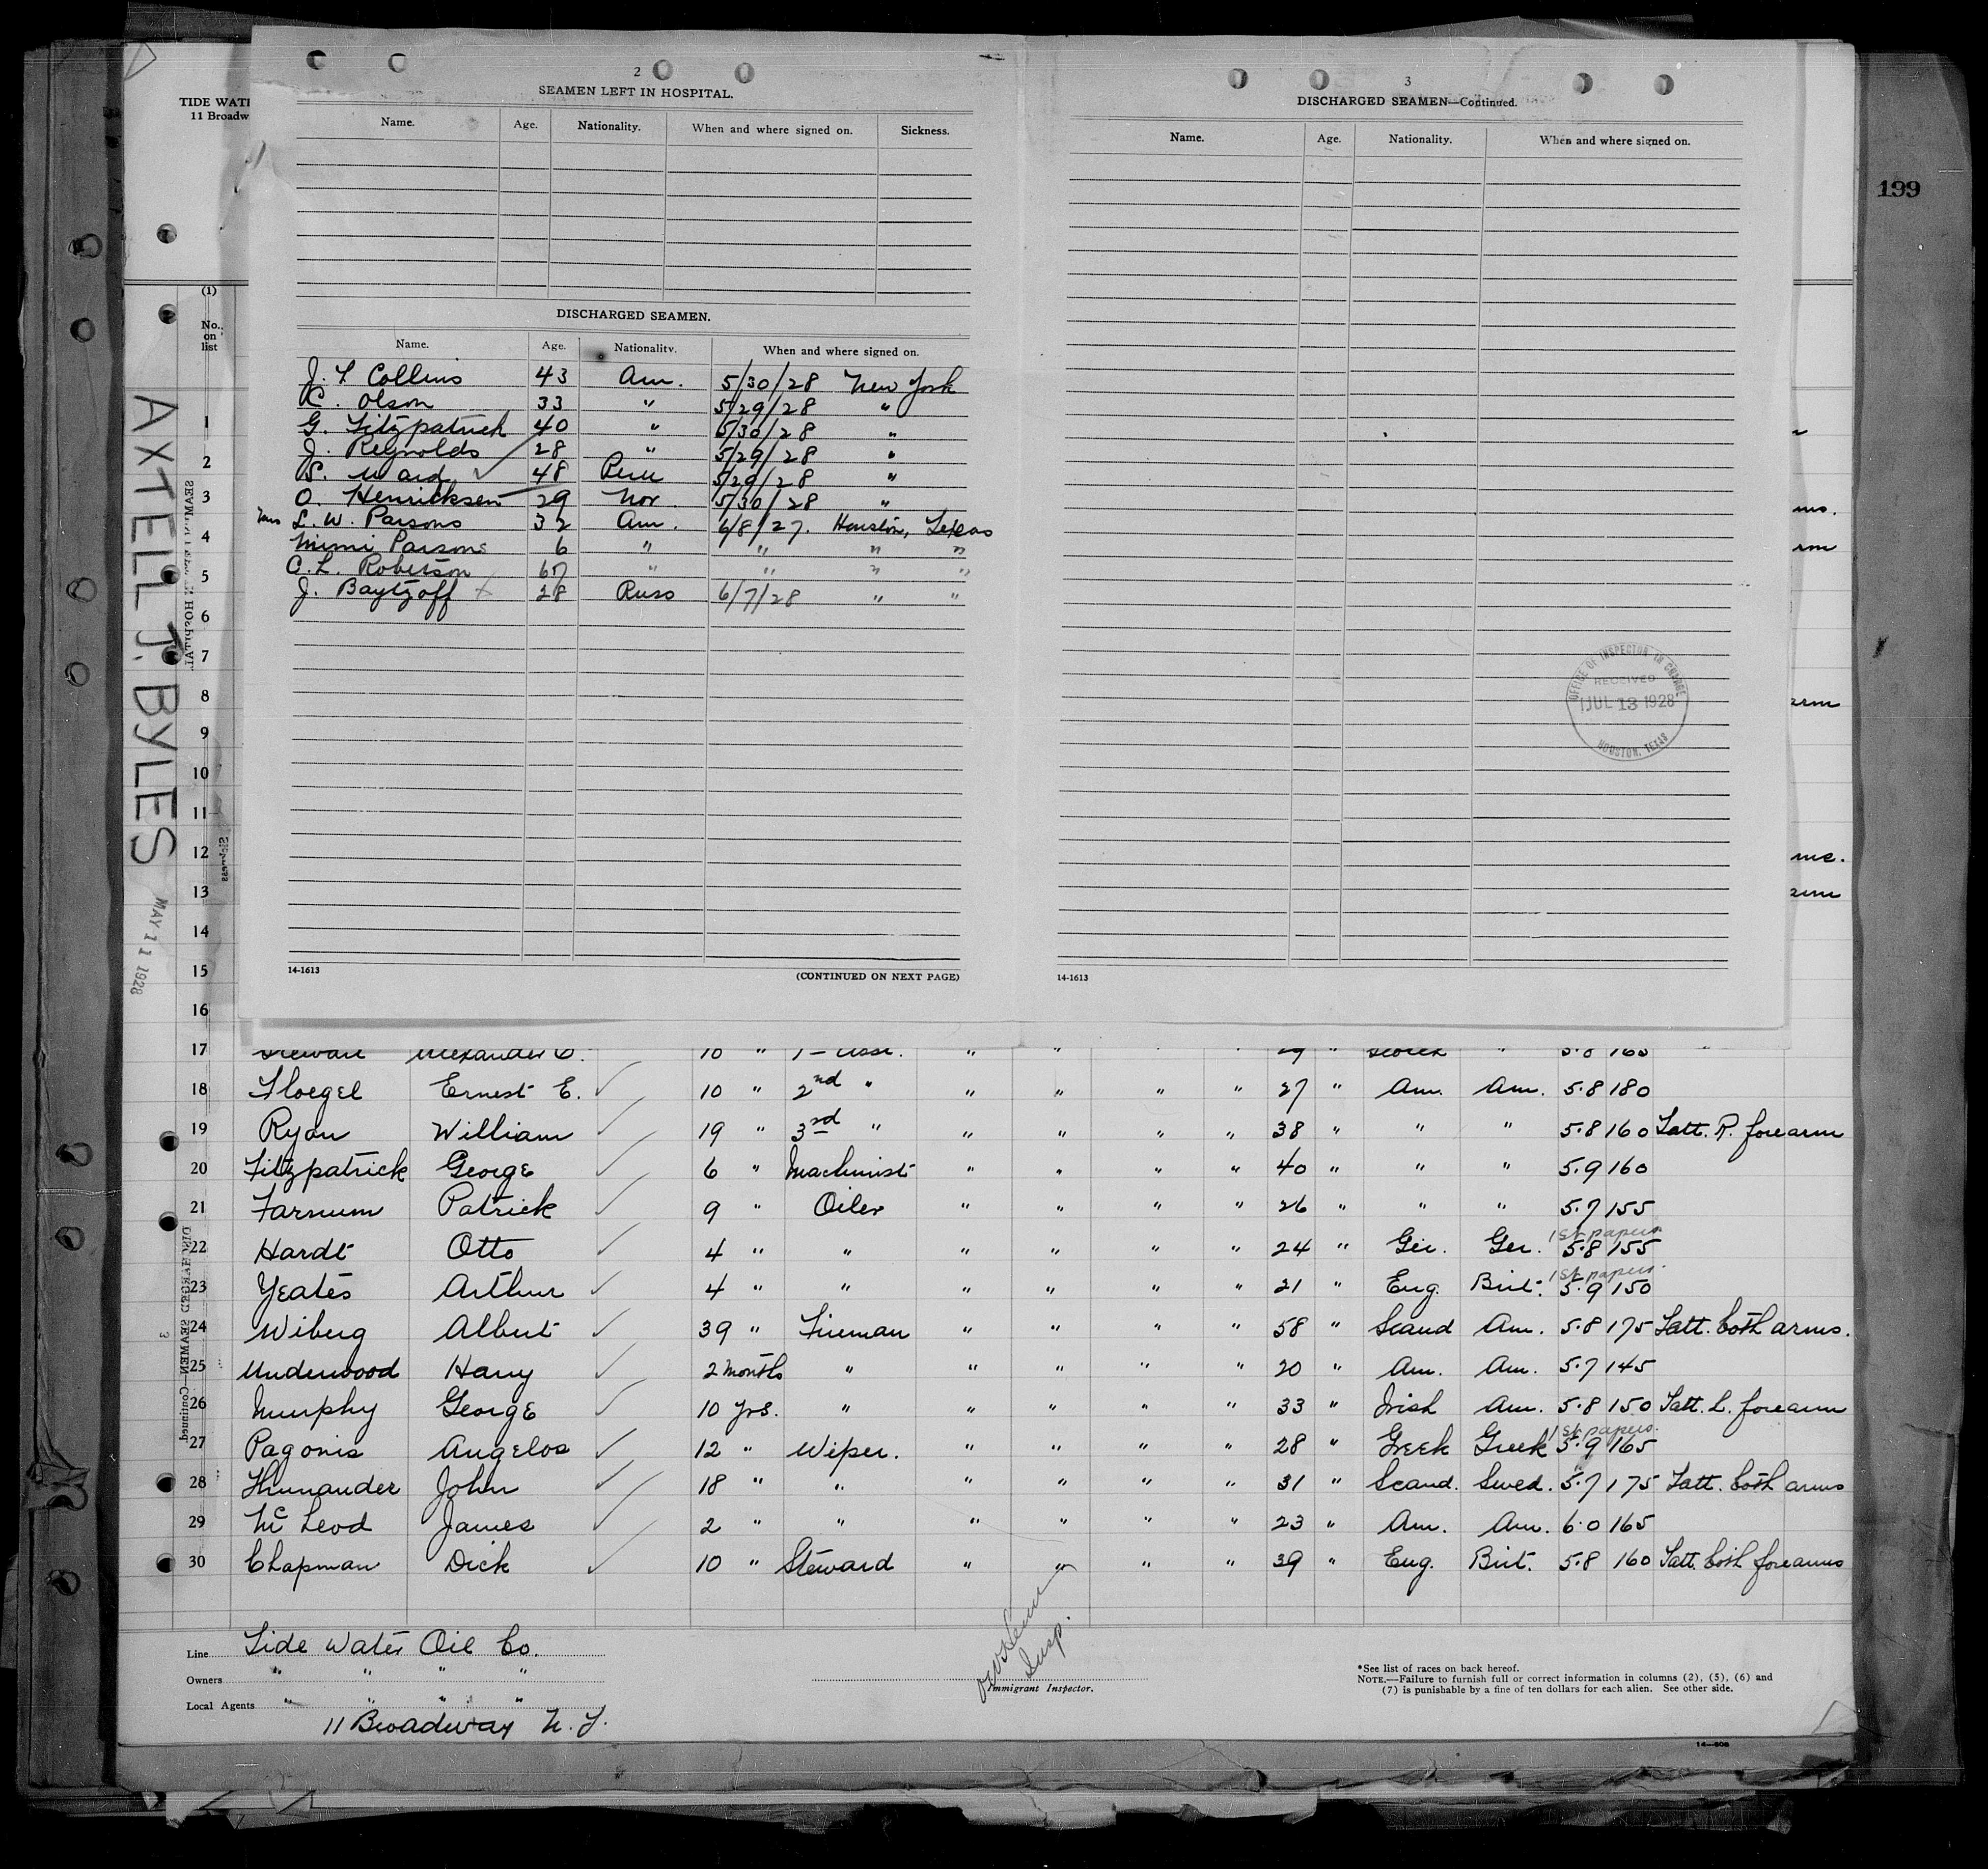 199
TIDE WAT
11 Broadw
AXTELL J. BYLES
MAY 11 1928
2
SEAMEN LEFT IN HOSPITAL.
Name. Age. Nationality. When and where signed on. Sickness.
DISCHARGED SEAMEN.
Name. Age. Nationality. When and where signed on.
J. L Collins 43 Am. 5/30/28 New York
K. Olson 33 " 5/29/28 "
G. Fitzpatrick 40 " 5/30/28 "
J. Reynolds 28 " 5/29/28 "
B. Ward 48 Peru 5/29/28 "
O. Henricksen 29 Nor. 5/30/28 "
Mrs L. W. Parsons 32 Am. 6/8/27. Houston, Texas
Mimi Parsons 6 " " " "
C. L. Roberson 67 " " " "
J. Baytzoff x 28 Russ 6/7/28 " "
14-1613
(CONTINUED ON NEXT PAGE)
3
DISCHARGED SEAMEN—Continued.
Name. Age. Nationality. When and where signed on.
OFFICE OF INSPECTOR IN CHARGE
RECEIVED
JUL 13 1928
HOUSTON, TEXAS
14-1613
(1)
No. on list
1
2
3
4
5
6
7
8
9
10
11
12
13
14
15
16
17 Stewart Alexander C. 10 " 1st Asst. " " " 29 " Scotch " 5.8 165
18 Floegel Ernest E. 10 " 2nd " " " " " 27 " Am. Am. 5.8 180
19 Ryan William 19 " 3rd " " " " " 38 " " " 5.8 160 Tatt. R. forearm
20 Fitzpatrick George 6 " Machinist " " " " 40 " " " 5.9 160
21 Farnum Patrick 9 " Oiler " " " " 26 " " " 5.7 155
22 Hardt Otto 4 " " " " " " 24 " Ger. Ger. 1st papers 5.8 155
23 Yeates Arthur 4 " " " " " " 21 " Eng. Brit. 1st papers. 5.9 150
24 Wiberg Albert 39 " Fireman " " " " 58 " Scand Am. 5.8 175 Tatt. both arms.
25 Underwood Harry 2 months " " " " " 20 " Am. Am. 5.7 145
26 Murphy George 10 yrs. " " " " " 33 " Irish Am. 5.8 150 Tatt. L. forearm
27 Pagonis Angelos 12 " Wiper. " " " " 28 " Greek Greek 1st papers. 5.9 165
28 Hunander John 18 " " " " " " 31 " Scand. Swed. 5.7 175 Tatt. both arms
29 McLeod James 2 " " " " " " 23 " Am. Am. 6.0 165
30 Chapman Dick 10 " Steward " " " " 39 " Eng. Brit. 5.8 160 Tatt. both forearms
Line Tide Water Oil Co.
Owners " " " "
Local Agents " " " "
11 Broadway N. Y.
Insp.
Immigrant Inspector.
*See list of races on back hereof.
NOTE.—Failure to furnish full or correct information in columns (2), (5), (6) and
(7) is punishable by a fine of ten dollars for each alien. See other side.